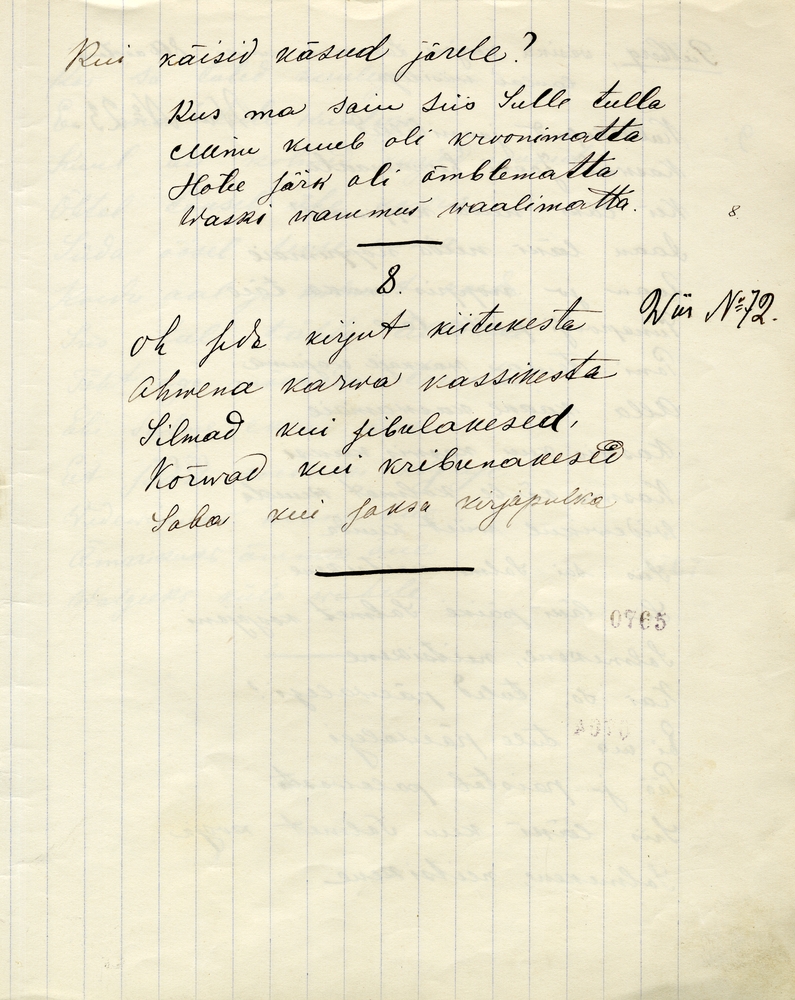 Kui käisid käsud järele?
Kus ma sain siis Sulle tulla
Minu kuub oli kroonimatta
Hobe särk oli õmblematta
Waski wammus waalimatta.
8.
8.
Wiis № 72.
Oh seda kirjut kiitukesta
Ahwena karwa kassikesta
Silmad kui sibulakesed,
Kõrwad kui kribunakesed
Saba kui saksa kirjapulka
0765